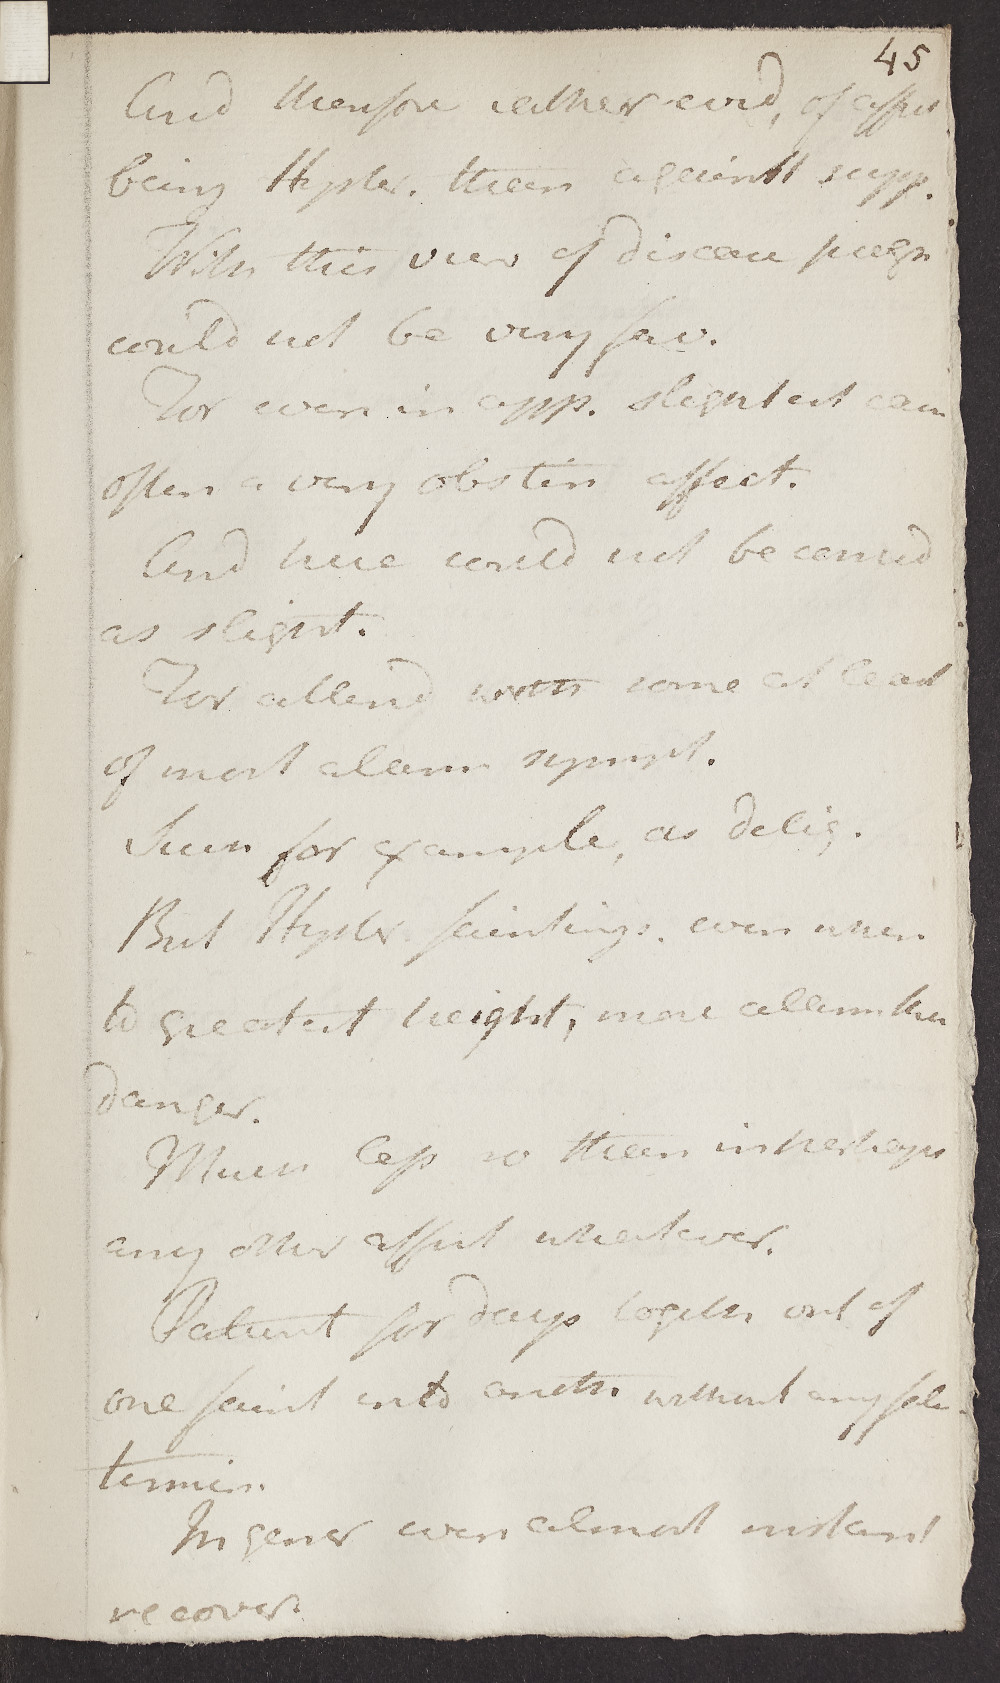 45
And therefore rather evid, of affect
being Hyster. than against supp.
With this view of disease progn
could not be very fav.
For even in app. slightest cases
often a very obstin affect.
And here could not be consid
as slight.
For attend with some at least
of most alarm sympt.
Such for example, as deliq.
But Hyster. faintings. even when
to greatest height, more alarm than
danger.
Much less so than in perhaps
any other affect whatever.
Patient for days togeth out of
one faint into anoth. without any fatal
termin.
In gener even almost instant
recover.